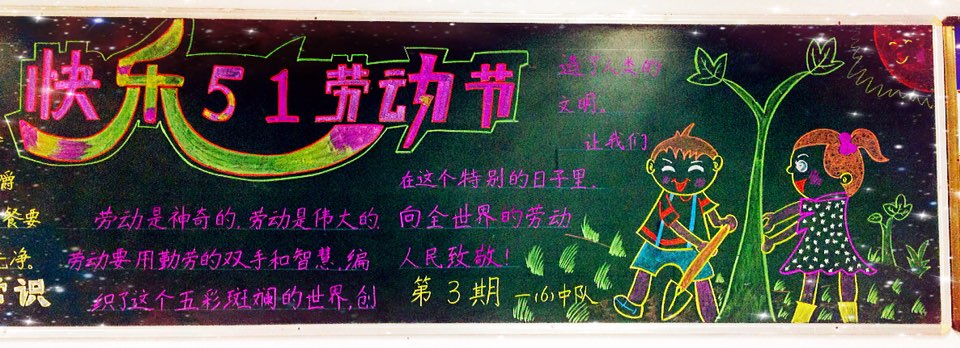 快乐51劳动节
餐要
识
劳动是神奇的,劳动是伟大的,
劳动要用勤劳的双手和智慧,编
织了这个五彩斑斓的世界,创
造了人类的
文明。
让我们
在这个特别的日子里,
向全世界的劳动
人民致敬!
第3期 一(6)中队